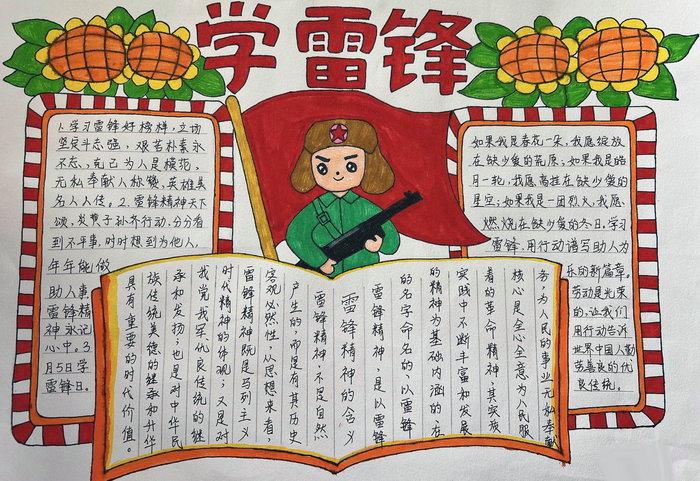 学雷锋
1.学习雷锋好榜样,立场
坚定斗志强,艰苦朴素永
不忘,克己为人是模范,
无私奉献人称赞,英雄美
名人人传。2.雷锋精神天下
颂,发动子孙齐行动,分分看
到不平事,时时想到为他人,
年年能做
助人事,
雷锋精
神永记
心中。3
月5日学
雷锋日。
如果我是春花一朵,我愿绽放
在缺少爱的荒原;如果我是皓
月一轮,我愿高挂在缺少爱的
星空;如果我是一团烈火,我愿
燃烧在缺少爱的冬日,学习
雷锋,用行动谱写助人为
乐的新篇章。
劳动是光荣
的,让我们
用行动告诉
世界中国人勤
劳善良的优
良传统。
雷锋精神的含义
雷锋精神,是以雷锋
的名字命名的、以雷锋
的精神为基础内涵的、在
实践中不断丰富和发展
着的革命精神,其实质
核心是全心全意为人民服
务,为人民的事业无私奉献
雷锋精神,不是自然
产生的,而是有其历史
客观必然性,从思想来看,
雷锋精神既是马列主义
时代精神的体现;又是对
我党我军优良传统的继
承和发扬;也是对中华民
族传统美德的继承和升华
具有重要的时代价值。